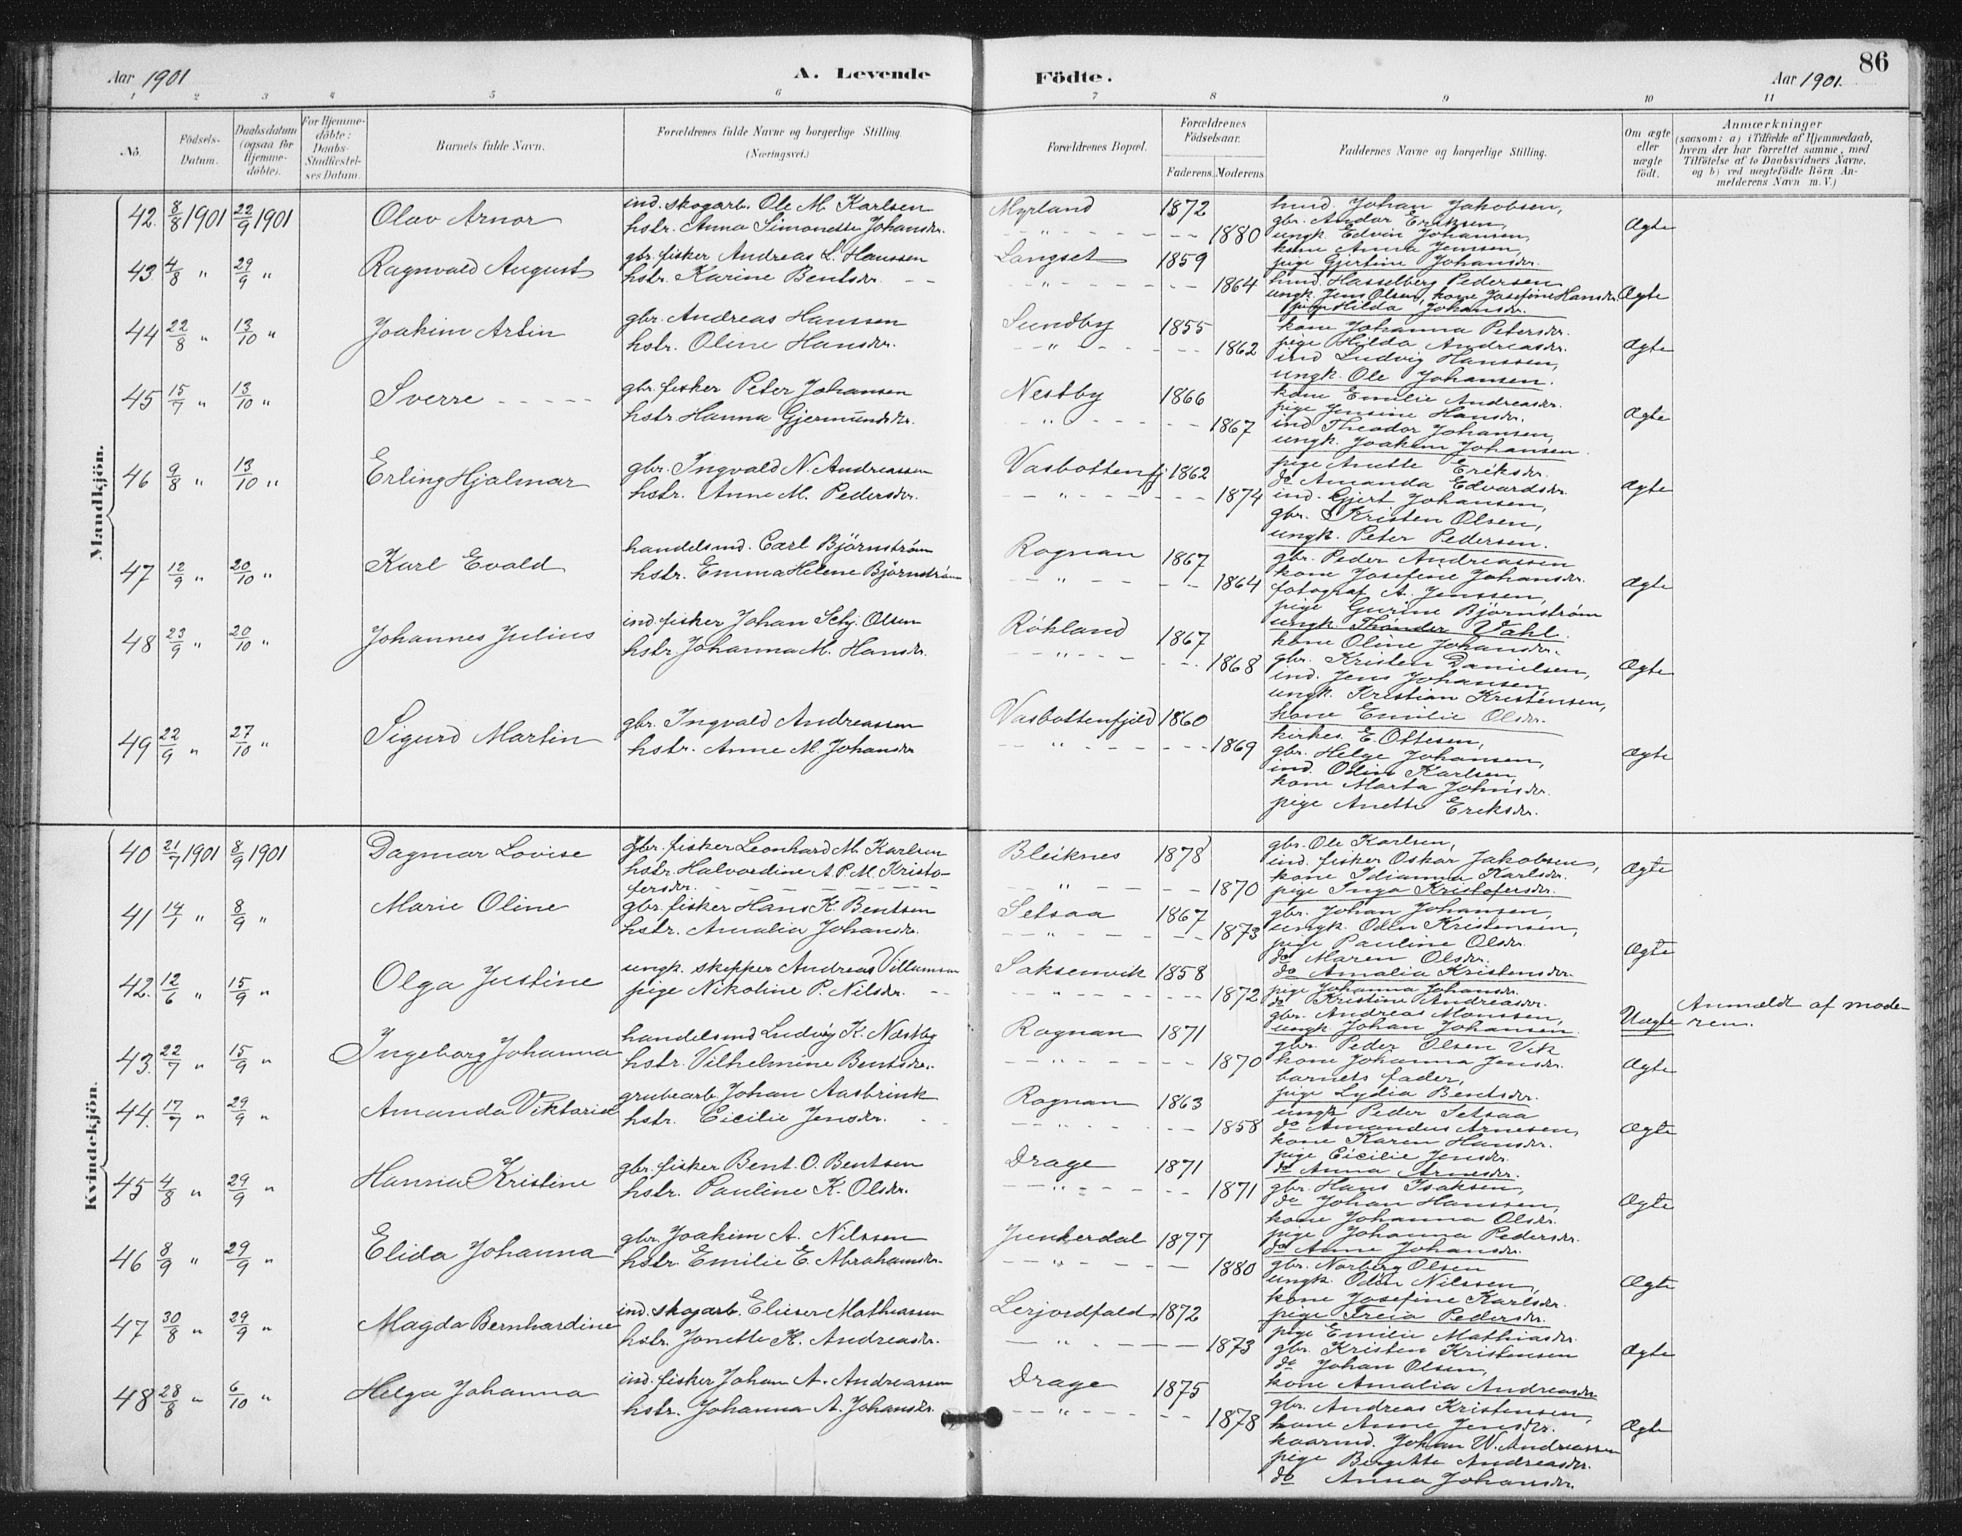 Aar 1901 A. Levende
Födte. Aar 1901. 86
1 2 3 4 5 6 7 8 9 10 11
No. Födsels-Datum. Daabsdatum (ogsaa for Hjemme-döbte). For Hjemme-döbte: Daabs-Stadfæstel-ses Datum. Barnets fulde Navn. Forældrenes fulde Navne og borgerlige Stilling. (Næringsvei.) Forældrenes Bopæl. Forældrenes Födselsaar. Faderens. Moderens. Faddernes Navne og borgerlige Stilling. Om ægte eller uægte födt. Anmærkninger (saasom: a) i Tilfælde af Hjemmedaab, hvem der har forrettet samme, med Tilföielse af to Daabsvidners Navne. og b) ved uægtefödte Börn An-melderens Navn m. V.)
Mandkjön.
42. 8/8 1901 22/9 1901 Olav Arnor
ind. skogarb. Ole M. Karlsen
hstr. Anna Simonette Johansdr.
Myrland 1872
1880
hmd. Johan Jakobsen,
gbr. Andor Eriksen,
ungk. Edvin Johansen,
kone Anna Jensen,
pige Gjertine Johansdr.
Ægte
43 4/8 " 29/9 " Ragnvald August
gbr. fisker Andreas L. Hanssen
hstr. Karine Bentsdr.
Langset 1859
1864
hmd. Hasselberg Pedersen
ungk. Jens Olsen, kone Josefine Hansdr.
pige Hilda Johansdr.
Ægte
44 22/8 " 13/10 " Joakim Artin
gbr. Andreas Hanssen
hstr. Oline Hansdr.
Sundby 1855
1862
kone Johanna Petersdr.
pige Hilda Andreasdr.
ind Ludvig Hanssen,
ungk. Ole Johansen.
Ægte
45 15/7 " 13/10 " Sverre
gbr. fisker Peter Johansen
hstr. Hanna Gjermundsdr.
Nestby 1866
1867
kone Emilie Andreasdr.
pige Jensine Hansdr.
ind Theodor Johansen,
ungk. Joakim Johansen
Ægte
46 9/8 " 13/10 " Erling Hjalmar
gbr. Ingvald N. Andreassen
hstr. Anne M. Pedersdr.
Vasbottenfj 1862
1874
pige Anette Eriksdr.
do Amanda Edvardsdr.
ind. Gjert Johansen,
gbr. Kristen Olsen,
ungk. Peter Pedersen.
Ægte
47 12/9 " 20/10 " Karl Evald
handelsmd. Carl Björnström
hstr. Emma Helene Björnström
Rognan 1867
1864
gbr. Peder Andreassen
kone Josefine Johansdr.
fotograf A. Jenssen,
pige Gurine Björnström
ungk. Thønder Vahl.
Ægte
48 23/9 " 20/10 " Johannes Julius
ind. fisker Johan Schj. Olsen
hstr. Johanna M. Hansdr.
Rökland 1867
1868
kone Oline Johansdr.
gbr. Kristen Danielsen,
ind. Jens Johansen,
ungk. Kristian Kristensen,
kone Emilie Olsdr.
Ægte
49 22/9 " 27/10 " Sigurd Martin
gbr. Ingvald Andreassen
hstr. Anne M. Johansdr
Vasbottenfjeld 1860
1869
kirkes. E. Ottesen,
gbr. Helge Johansen,
ind. Odin Karlsen,
kone Marta Johnsdr.
pige Anette Eriksdr.
Ægte
Kvindekjön.
40 21/7 1901 8/9 1901 Dagmar Lovise
gbr. fisker Leonhard M. Karlsen
hstr. Halvardine A. P. M. Kristo-
fersdr.
Bleiknes 1878
1870
gbr. Ole Karlsen,
ind. fisker Oskar Jakobsen,
kone Idianna Karlsdr.
pige Inga Kristofersdr.
Ægte
41 14/7 " 8/9 " Marie Oline
gbr. fisker Hans K. Bentsen
hstr. Amalia Johansdr.
Setsaa 1867
1873
gbr. Johan Johansen,
ungk. Odin Kristensen,
pige Pauline Olsdr.
do Maren Olsdr.
do Amalia Kristensdr.
Ægte
42. 12/6 " 15/9 " Olga Justine
ungk. skipper Andreas Villumsen
pige Nikoline P. Nilsdr.
Saksenvik 1858
1872
pige Johanna Johansdr.
do Kristine Andreasdr.
gbr. Andreas Monssen,
ungk. Johan Johansen
Uægte
Anmeldt af mode-
ren.
43. 22/7 " 15/9 " Ingeborg Johanna
handelsmd Ludvig K. Næstby
hstr. Vilhelmine Bentsdr.
Rognan 1871
1870
gbr. Peder Olsen Vik
kone Johanna Jensdr.
barnets fader,
pige Lydia Bentsdr.
Ægte
44. 17/7 " 29/9 " Amanda Viktoria
grubearb. Johan Aasbrink
hstr. Cicilie Jensdr.
Rognan 1863
1858
ungk Peder Setsaa
do Amandus Arnesen,
kone Karen Hansdr.
pige Cicilie Jensdr.
do Anna Arnesdr.
Ægte
45 4/8 " 29/9 " Hanna Kristine
gbr. fisker Bent. O. Bentsen
hstr. Pauline K. Olsdr.
Drage 1871
1871
gbr. Hans Isaksen,
do Johan Hanssen,
kone Johanna Olsdr.
pige Johanna Pedersdr.
do Anne Johansdr.
Ægte
46 8/9 " 29/9 " Elida Johanna
gbr. Joakim A. Nilssen
hstr. Emilie E. Abrahamsdr.
Junkerdal 1877
1880
gbr. Norberg Olsen
ungk. Odin Nilssen,
kone Josefine Karlsdr.
pige Freia Pedersdr.
Ægte
47 30/8 " 29/9 " Magda Bernhardine
ind. skogarb. Elieser Mathiassen
hstr. Jonette K. Andreasdr.
Lerjordfald 1872
1873
pige Emilie Mathiasdr.
gbr. Kristen Kristensen
do Johan Olsen,
kone Amalia Andreasdr
Ægte
48 28/8 " 6/10 " Helga Johanna
ind. fisker Johan A. Andreassen
hstr. Johanna A. Johansdr.
Drage 1875
1878
gbr. Andreas Kristensen,
kone Anne Jensdr.
kaarmd. Johan W. Andreassen
pige Bergitte Andreasdr.
do Anna Johansdr.
Ægte